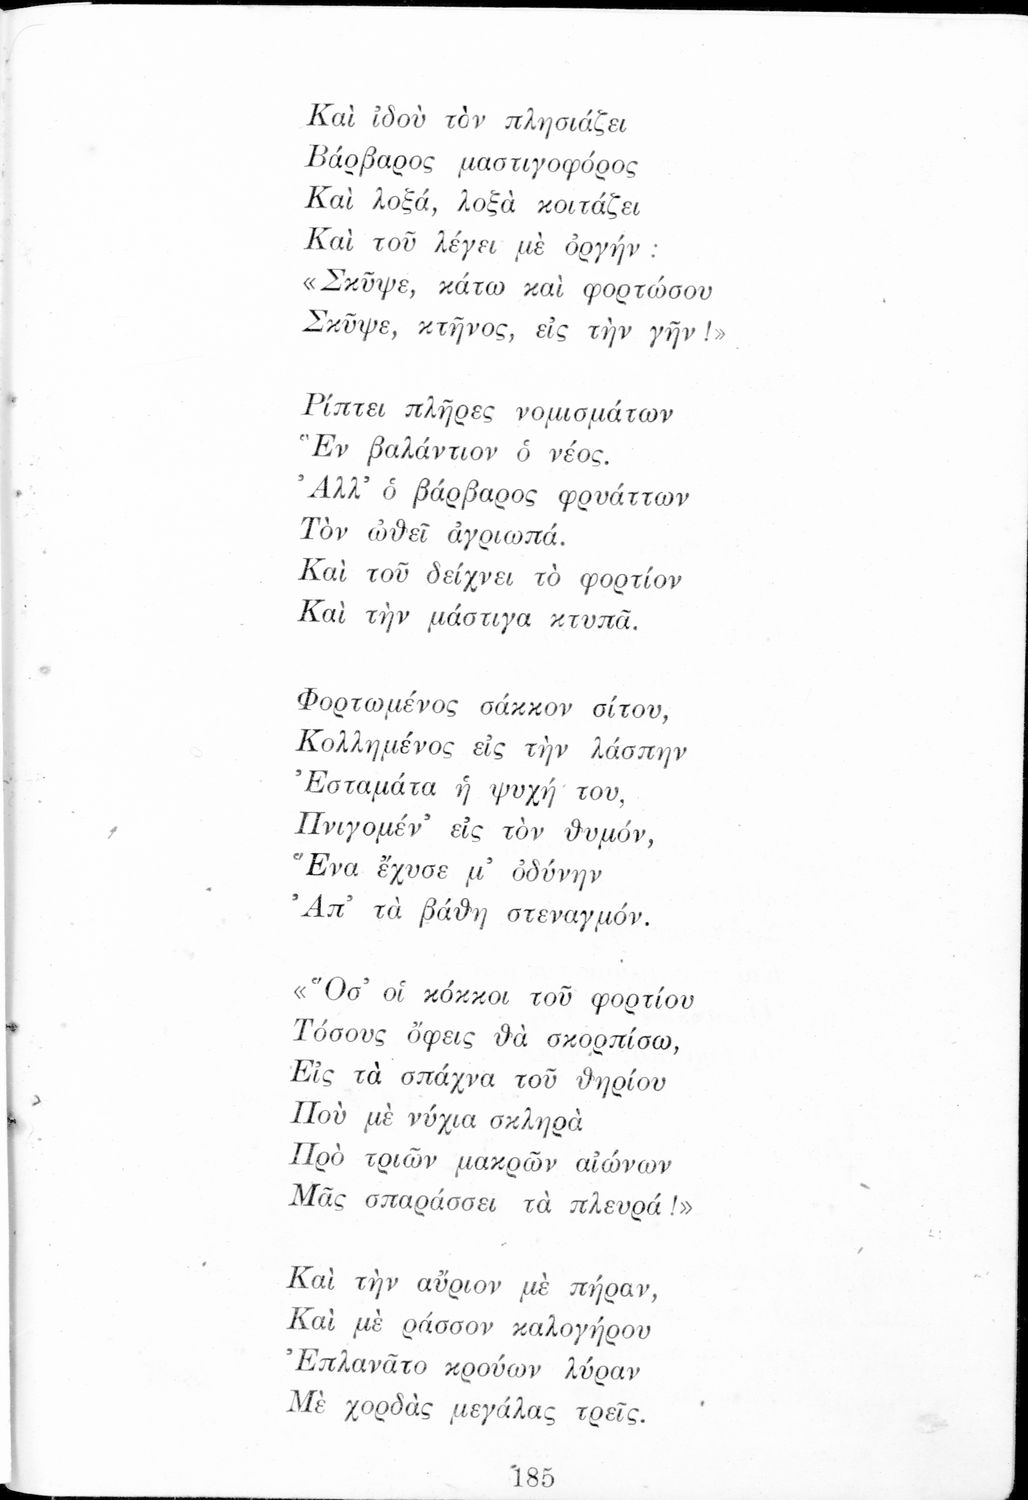 Καὶ ἰδοὺ τὸν πλησιάζει
Βάρβαρος μαστιγοφόρος
Καὶ λοξά, λοξὰ κοιτάζει
Καὶ τοῦ λέγει μὲ ὀργήν :
«Σκῦψε, κάτω καὶ φορτώσου
Σκῦψε, κτῆνος, εἰς τὴν γῆν !»
Ρίπτει πλῆρες νομισμάτων
Ἓν βαλάντιον ὁ νέος.
Ἀλλ' ὁ βάρβαρος φρυάττων
Τὸν ὠθεῖ ἀγριωπά.
Καὶ τοῦ δείχνει τὸ φορτίον
Καὶ τὴν μάστιγα κτυπᾶ.
Φορτωμένος σάκκον σίτου,
Κολλημένος εἰς τὴν λάσπην
Ἐσταμάτα ἡ ψυχή του,
Πνιγομέν' εἰς τὸν θυμόν,
Ἕνα ἔχυσε μ' ὀδύνην
Ἀπ' τὰ βάθη στεναγμόν.
«Ὅσ' οἱ κόκκοι τοῦ φορτίου
Τόσους ὄφεις θὰ σκορπίσω,
Εἰς τὰ σπάχνα τοῦ θηρίου
Ποὺ μὲ νύχια σκληρὰ
Πρὸ τριῶν μακρῶν αἰώνων
Μᾶς σπαράσσει τὰ πλευρά !»
Καὶ τὴν αὔριον μὲ πήραν,
Καὶ μὲ ράσσον καλογήρου
Ἐπλανᾶτο κρούων λύραν
Μὲ χορδὰς μεγάλας τρεῖς.
185